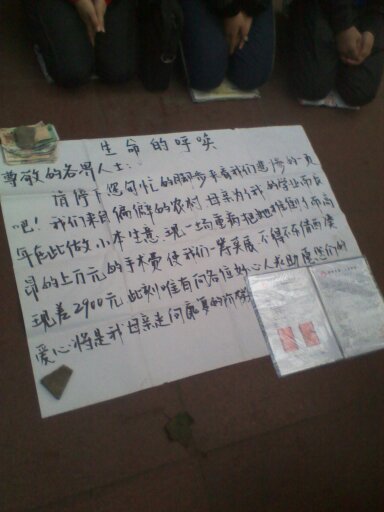 生命的呼唤
尊敬的各界人士:
请停下您匆忙的脚步来看我们悲惨的一页
吧!我们来自偏僻的农村 母亲为了我的学业而长
年在此做小本生意.现一场重病把她难倒了而高
昂的上万元的手术费使我们一筹莫展.不得不东借西凑
现差2900元 此刻唯有向各位好心人求助 您们的
爱心将是我母亲走向康复的阶梯